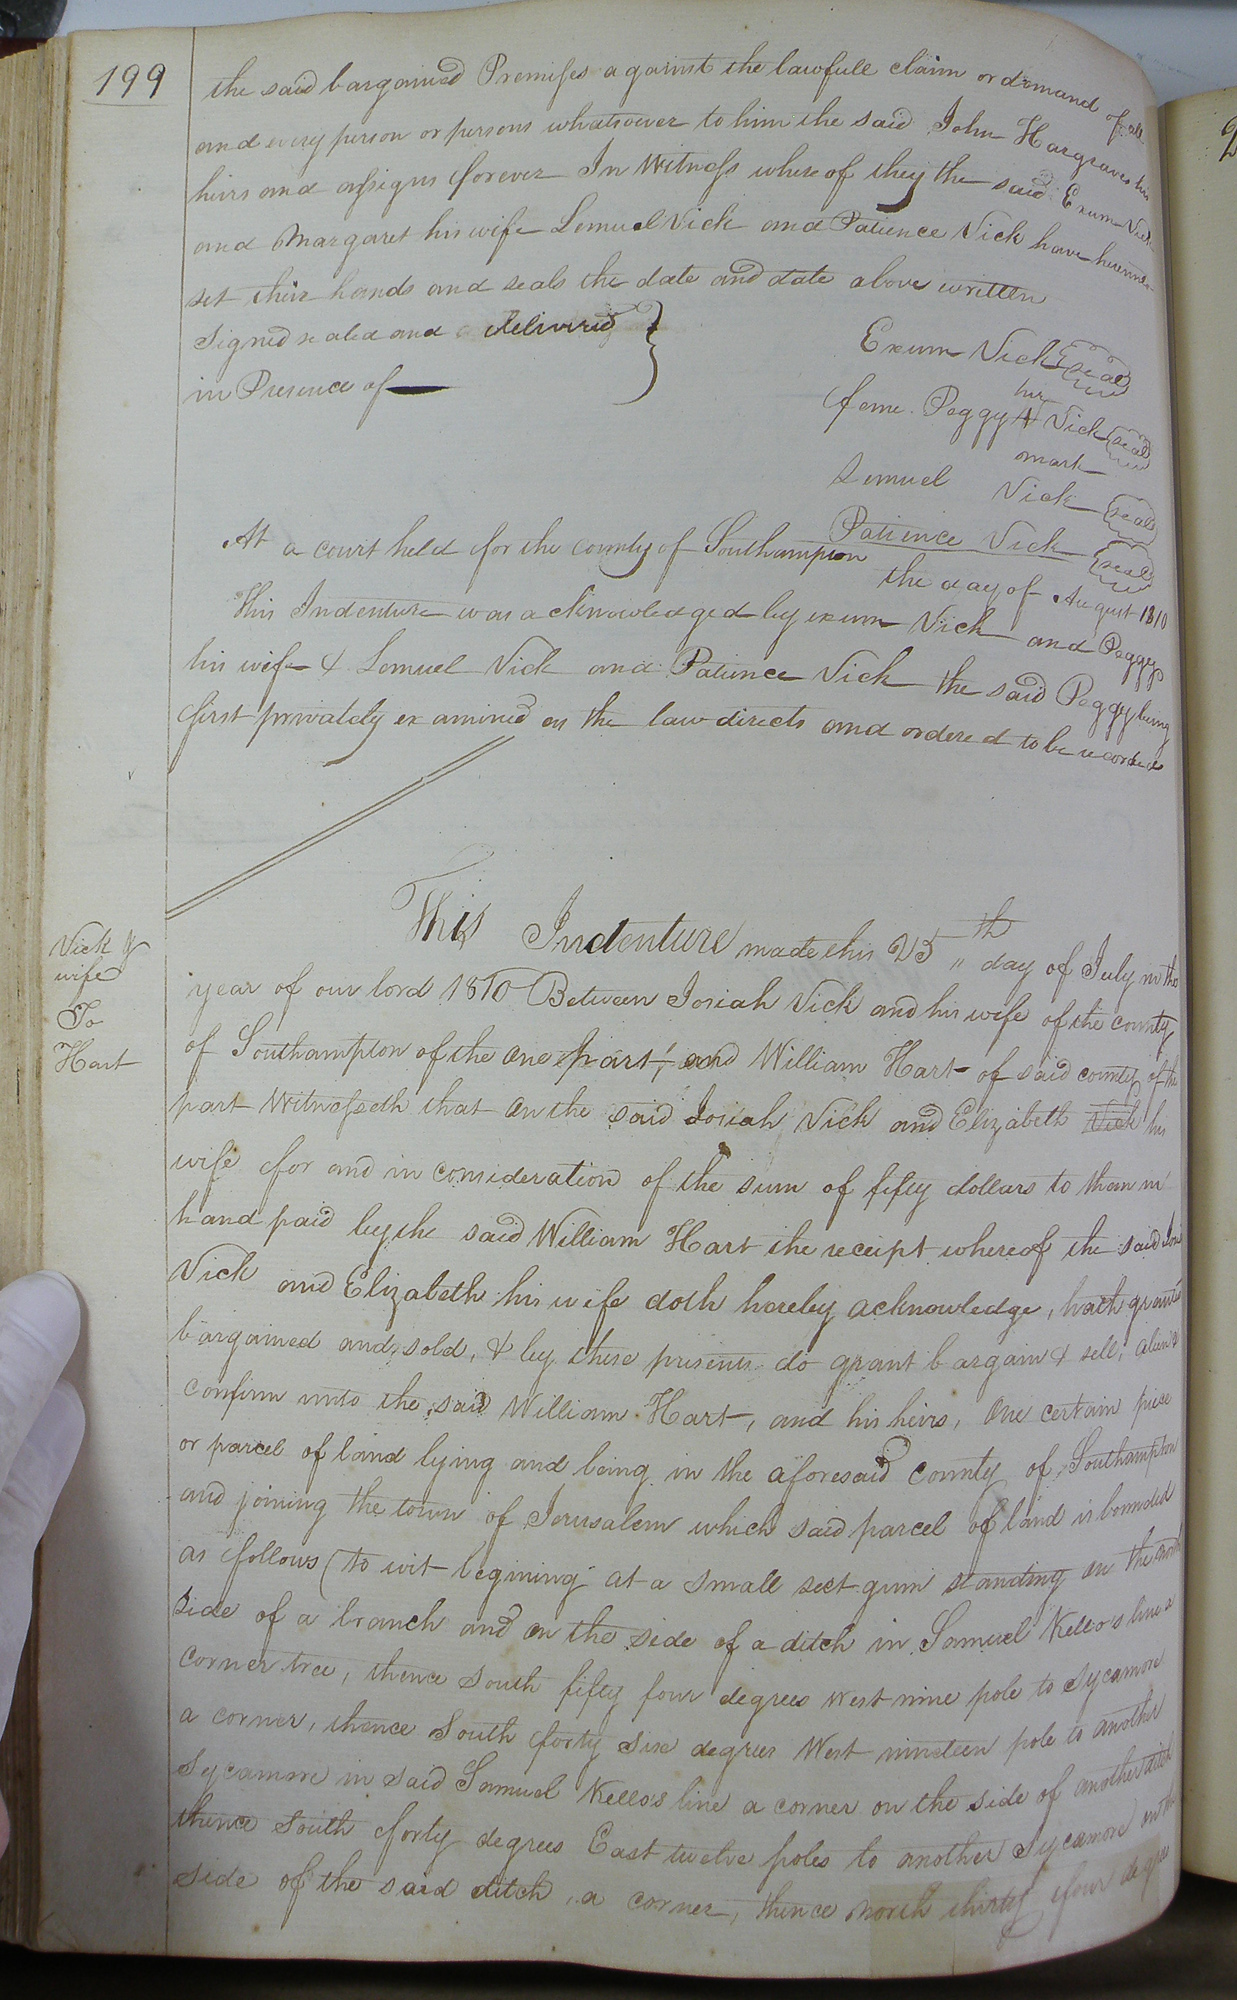 199
the said bargained Premises against the lawfull claim or demand of all
and every person or persons whatsoever to him the said John Hargraves his
heirs and assigns forever In Witness whereof they the said Exum Vick
and Margaret his wife Lemuel Vick and Patience Vick have hereunto
set their hands and seals the date and date above written
Signed sealed and delivered
in Presence of
Exum Vick seal
her
feme. Peggy Vick seal
mark
Lemuel Vick seal
Patience Vick seal
At a court held for the county of Southampton the day of August 1810
This Indenture was acknowledged by exum Vick and Peggy
his wife & Lemuel Vick and Patience Vick the said Peggy being
first privately examined as the law directs and ordered to be recorded
Vick &
wife
To
Hart
This Indenture made this 25th day of July in the
year of our lord 1810 Between Josiah Vick and his wife of the county
of Southampton of the one part, and William Hart of said county of the
part Witnesseth that on the said Josiah Vick and Elizabeth Vick his
wife for and in consideration of the sum of fifty dollars to them in
hand paid by the said William Hart the receipt whereof the said
Vick and Elizabeth his wife doth hereby acknowledge, hath granted
bargained and sold, & by these presents do grant bargain & sell,
confirm unto the said William Hart, and his heirs, One certain piece
or parcel of land lying and being in the aforesaid county of Southampton
and joining the town of Jerusalem which said parcel of land is bounded
as follows (to wit begining at a small sect gum standing on the north
side of a branch and on the side of a ditch in Samuel Kello's line a
corner tree, thence South fifty four degrees West nine pole to Sycamore
a corner, thence South forty six degrees West nineteen pole to another
Sycamore in said Samuel Kellos line a corner on the side of another ditch
thence South forty degrees East twelve poles to another Sycamore on the
side of the said ditch, a corner, thence north thirty four degrees